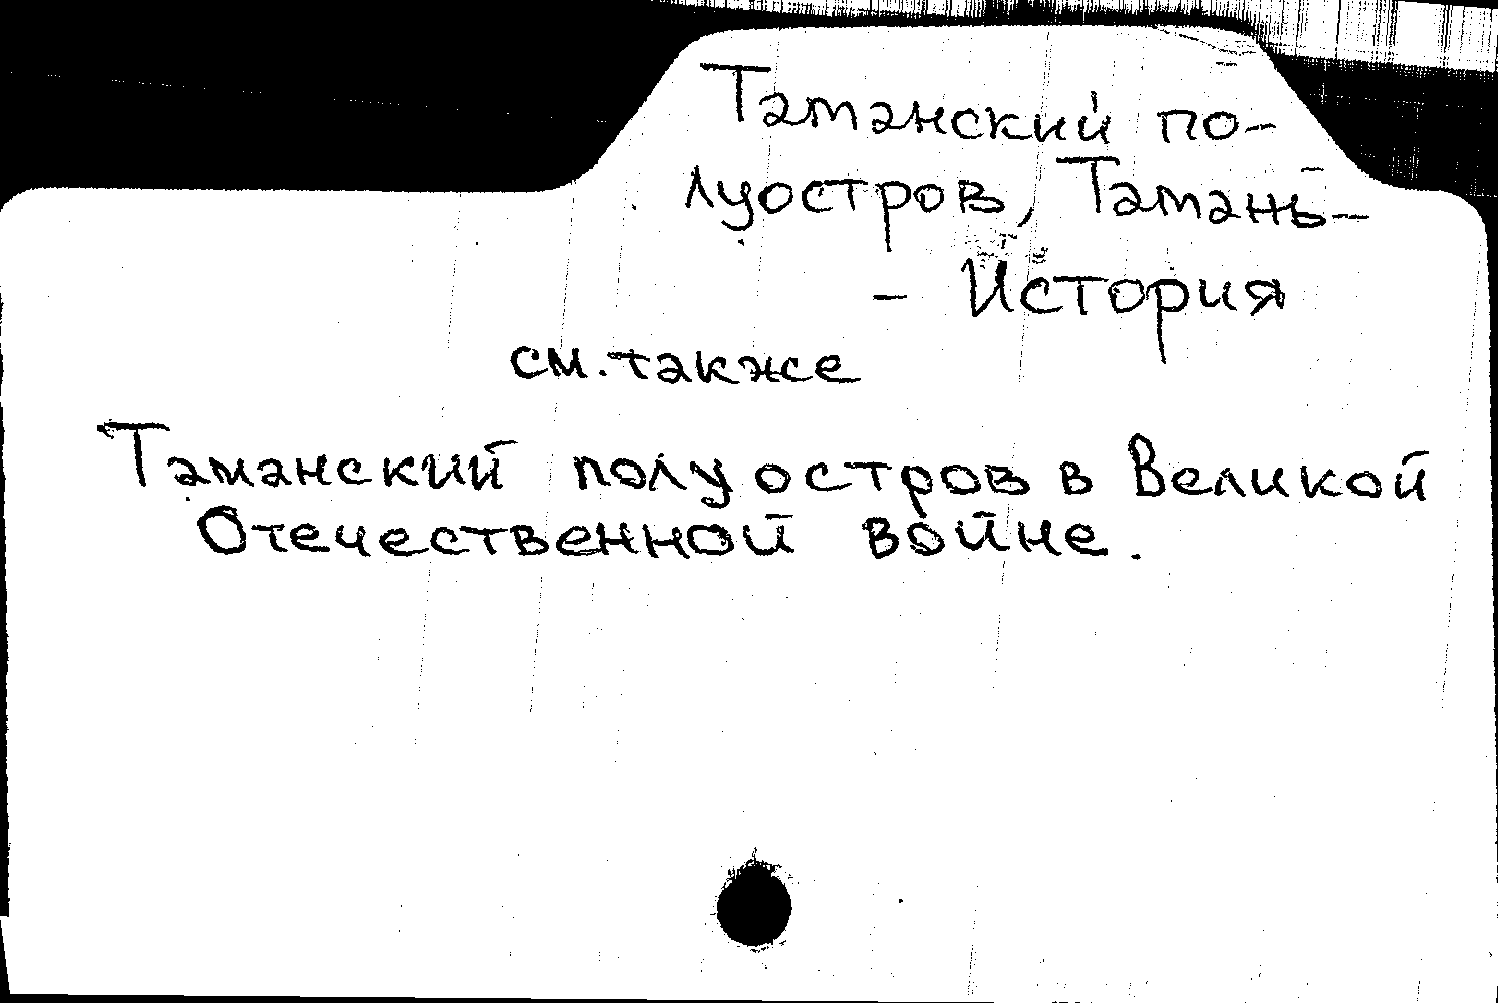 Таманский по-
луостров, Тамань-
- История
см. также
Таманский полуостров в Великой
Отечественной войне.